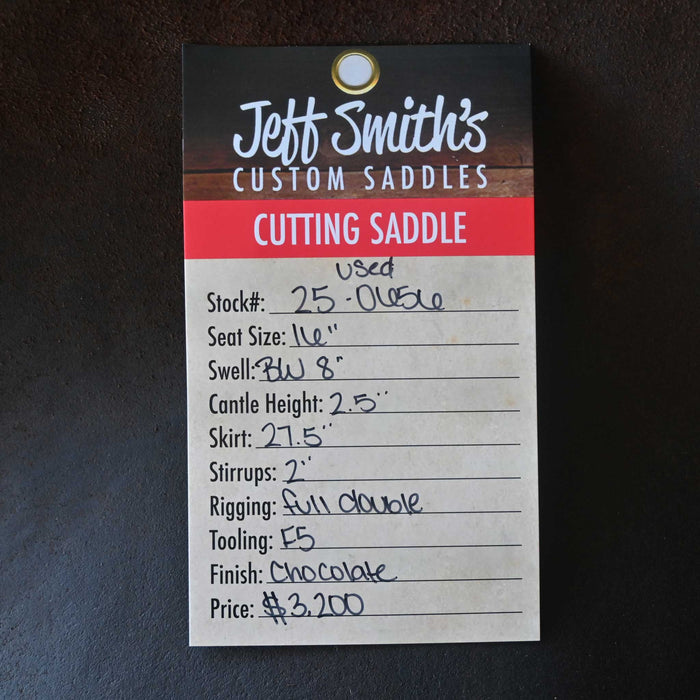 Jeff Smith's
CUSTOM SADDLES
CUTTING SADDLE
used
Stock#: 25-0656
Seat Size: 16"
Swell: BW 8"
Cantle Height: 2.5"
Skirt: 27.5"
Stirrups: 2"
Rigging: full double
Tooling: F5
Finish: Chocolate
Price: $3,200